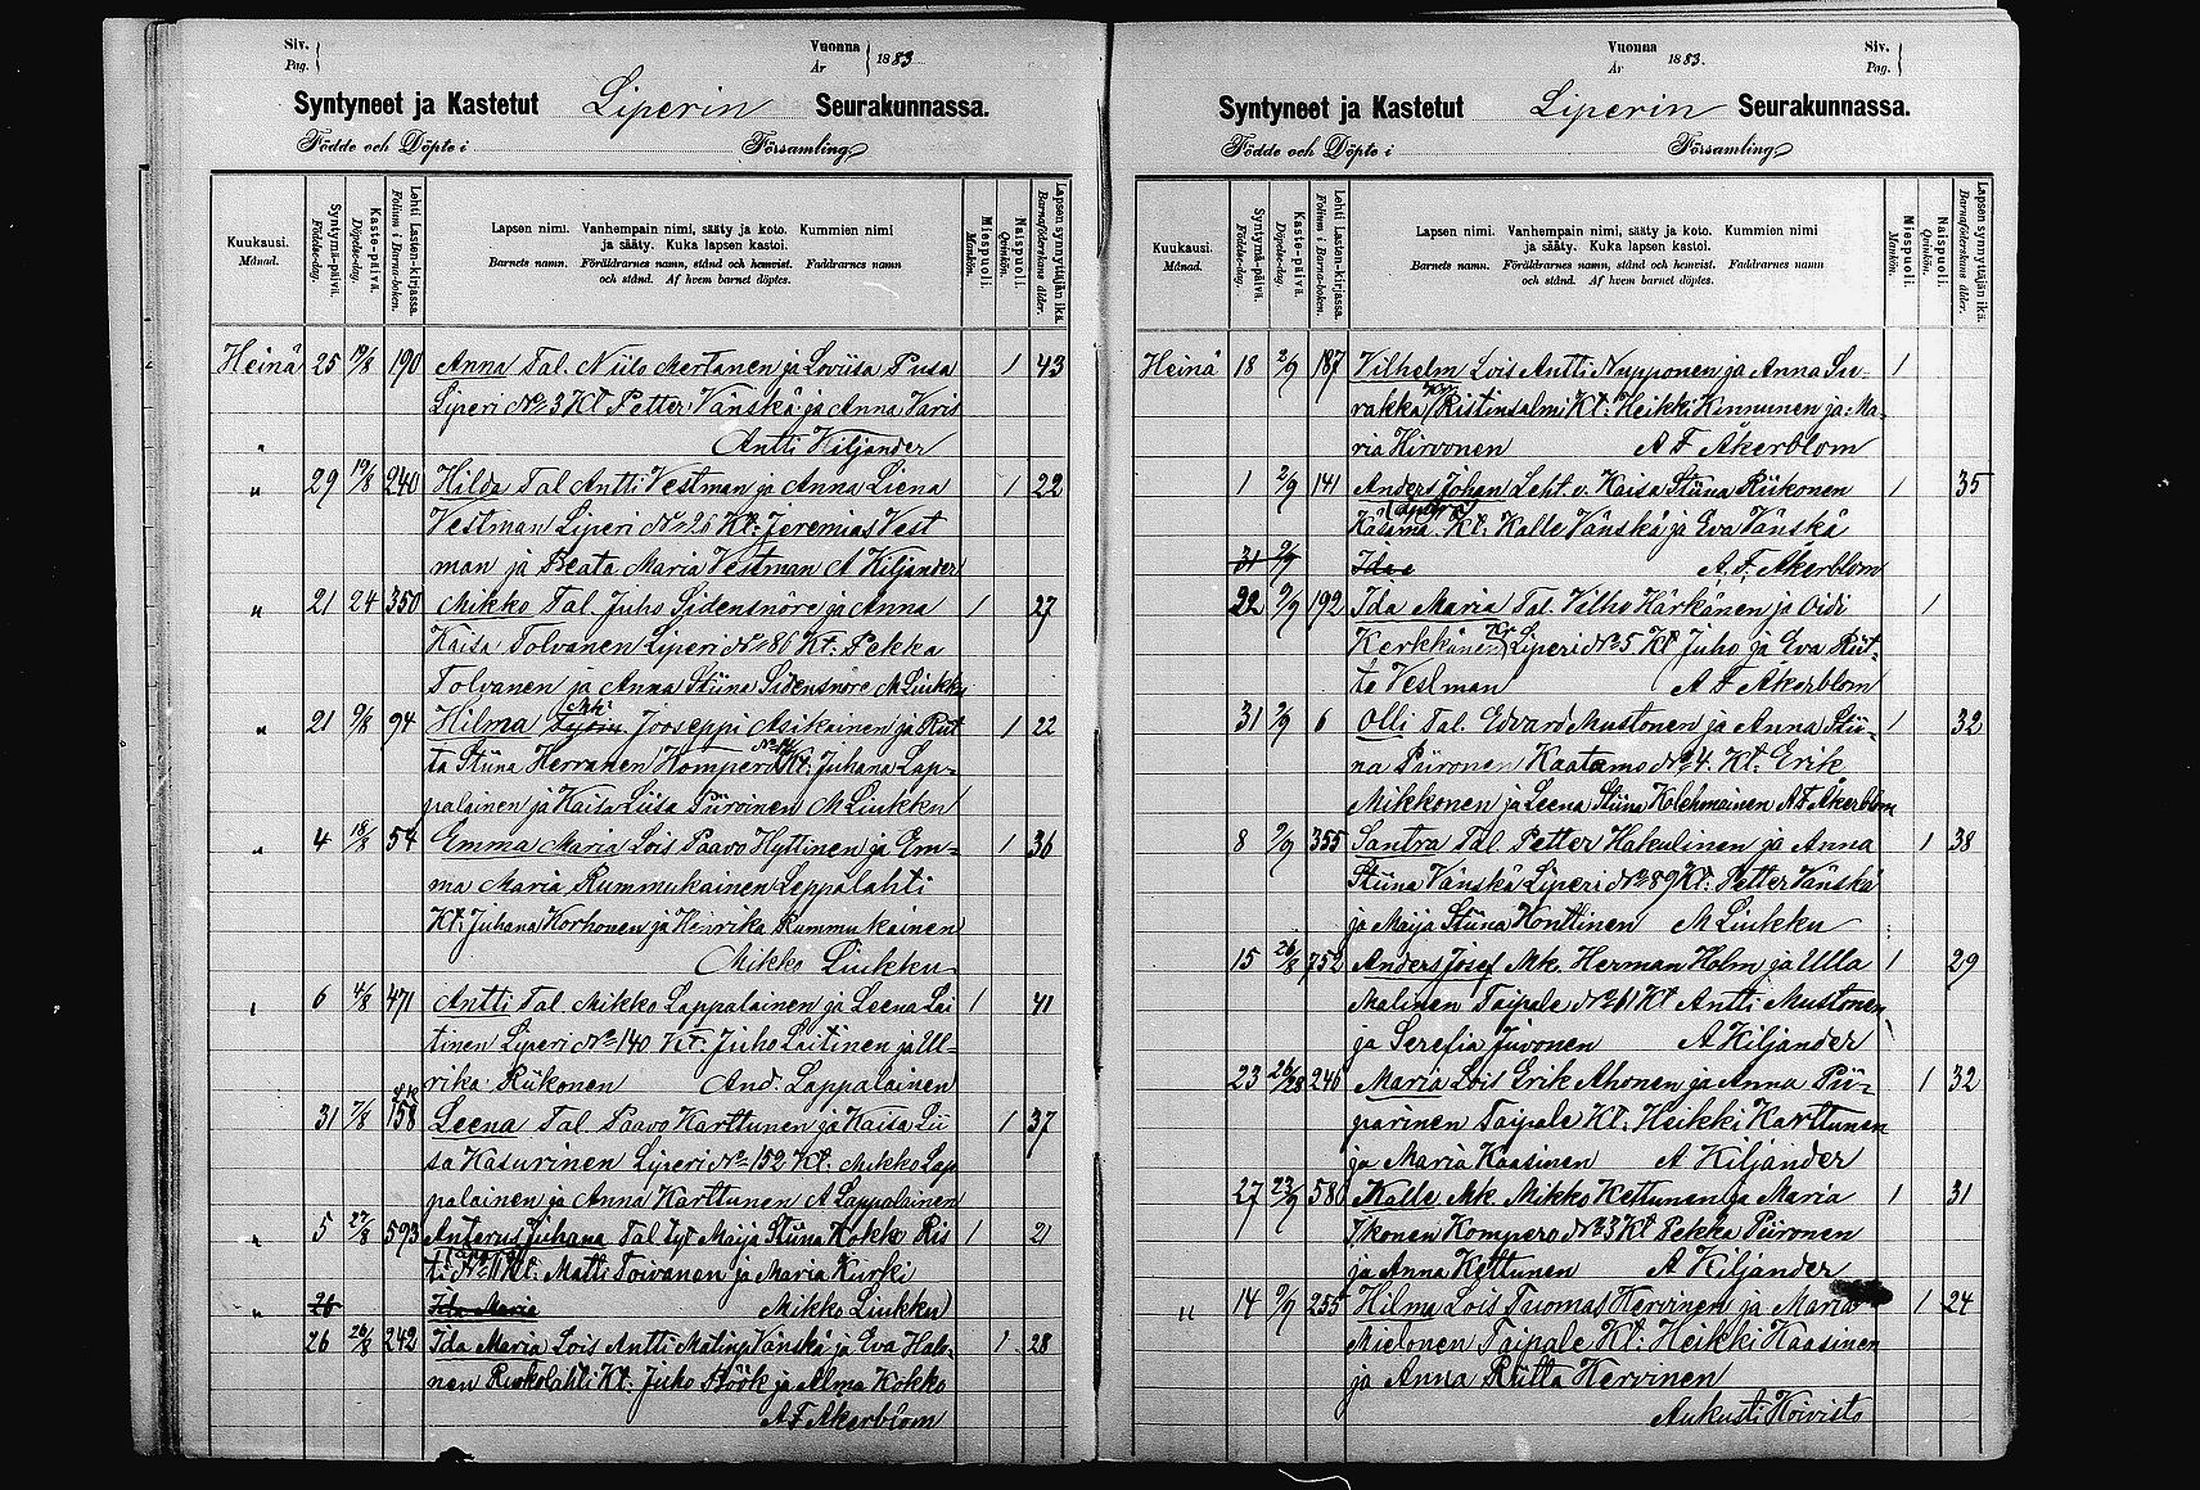 Siv.
Pag.
Vuonna
År
1883
Syntyneet ja Kastetut Liperin Seurakunnassa.
Födde och Döpte i Församling
Kuukausi.
Månad.
Syntymä-päivä.
Födelse-dag.
Kaste-päivä.
Döpelse-dag.
Lehti Lasten-kirjassa.
Folium i Barna-boken.
Lapsen nimi. Vanhempain nimi, sääty ja koto. Kummien nimi
ja sääty. Kuka lapsen kastoi.
Barnets namn. Föräldrarnes namn, stånd och hemvist. Faddrarnes namn
och stånd. Af hvem barnet döptes.
Miespuoli.
Mankön.
Naispuoli.
Qvinkön.
Lapsen synnyttäjän ikä.
Barnaföderskans ålder.
Heinä 25 19/8 190 Anna Tal. Niilo Mertanen ja Loviisa Pusa 1 43
Liperi No 3 Kt Petter Vänskä ja Anna Varis
Antti Kiljander
" 29 19/8 240 Hilda Tal Antti Vestman ja Anna Liena 1 22
Vestman Liperi No 26 Kt: Jeremias Vest
man ja Beata Maria Vestman A Kiljander
" 21 24 350 Mikko Tal. Juho Sidensnöre ja Anna 1 27
Kaisa Tolvanen Liperi No 86 Kt: Pekka
Tolvanen ja Anna Stiina Sidensnöre M Liukku
" 21 9/8 94 Hilma Jooseppi Asikainen ja Riit 1 22
ta Stiina Herranen Kompero Kt: Juhana Lap-
palainen ja Kaisa Liisa Piiroinen M Liukku
" 4 18/8 54 Emma Maria Lois Paavo Hyttinen ja Em- 1 36
ma Maria Rummukainen Leppälahti
Kt: Juhana Korhonen ja Henrika Rummukainen
Mikko Liukku
" 6 4/8 471 Antti Tal. Mikko Lappalainen ja Leena Lai 1 41
tinen Liperi No 140 Kt: Juho Laitinen ja Ul-
rika Riikonen And. Lappalainen
31 7/8 158 Leena Tal. Paavo Karttunen ja Kaisa Lii 1 37
sa Kasurinen Liperi No 152 Kt: Mikko Lap
palainen ja Anna Karttunen A Lappalainen
" 5 27/8 593 Anterus Juhana Tal tyt Maija Stiina Kokko Ris 1 21
ti No 11 Kt: Matti Toivanen ja Maria Kurki
" 26 Ida Maria Mikko Liukku
26 26/8 242 Ida Maria Lois Antti Matinp Vänskä ja Eva Hak- 1 28
nen Ruokolahti Kt: Juho Böök ja Alma Kokko
A F Åkerblom
Vuonna
År
1883.
Siv.
Pag.
Syntyneet ja Kastetut Liperin Seurakunnassa.
Födde och Döpte i Församling
Kuukausi.
Månad.
Syntymä-päivä.
Födelse-dag.
Kaste-päivä.
Döpelse-dag.
Lehti Lasten-kirjassa.
Folium i Barna-boken.
Lapsen nimi. Vanhempain nimi, sääty ja koto. Kummien nimi
ja sääty. Kuka lapsen kastoi.
Barnets namn. Föräldrarnes namn, stånd och hemvist. Faddrarnes namn
och stånd. Af hvem barnet döptes.
Miespuoli.
Mankön.
Naispuoli.
Qvinkön.
Lapsen synnyttäjän ikä.
Barnaföderskans ålder.
Heinä 18 2/9 187 Vilhelm Lois Antti Nupponen ja Anna Su- 1
rakka Ristinsalmi Kt: Heikki Kinnunen ja Ma-
ria Hirvonen A F Åkerblom
1 2/9 141 Anders Johan Leht. v. Kaisa Stiina Riikonen 1 35
Käsämä Kt: Kalle Vänskä ja Eva Vänskä
31 2/9 Ida A. F. Åkerblom
22 2/9 192 Ida Maria Tal. Vilho Härkänen ja Oidi 1
Kerkkänen Liperi No 5 Kt Juho ja Eva Riit-
ta Vestman A F Åkerblom
31 2/9 6 Olli Tal. Edvard Mustonen ja Anna Stii- 1 32
na Piironen Kaatamo No 4. Kt: Erik
Mikkonen ja Leena Stiina Kolehmainen A F Åkerblom
8 9/9 355 Santra Tal. Petter Hakulinen ja Anna 1 38
Stiina Vänskä Liperi No 89 Kt: Petter Vänskä
ja Maija Stiina Konttinen M Liukku
15 26/8 752 Anders Josef Mk. Herman Holm ja Ulla 1 29
Malinen Taipale No 61 Kt Antti Mustonen
ja Serefia Juvonen A Kiljander
23 26/8 246 Maria Lois Erik Ahonen ja Anna Pii- 1 32
parinen Taipale Kt: Heikki Karttunen
ja Maria Kaasinen A Kiljander
27 23/9 580 Kalle Mk. Mikko Kettunen ja Maria 1 31
Ikonen Kompero No 3 Kt Pekka Piironen
ja Anna Kettunen A Kiljander
" 14 9/9 255 Hilma Lois Tuomas Kervinen ja Maria 1 24
Mielonen Taipale Kt: Heikki Kaasinen
ja Anna Riitta Kervinen
Aukusti Koivisto